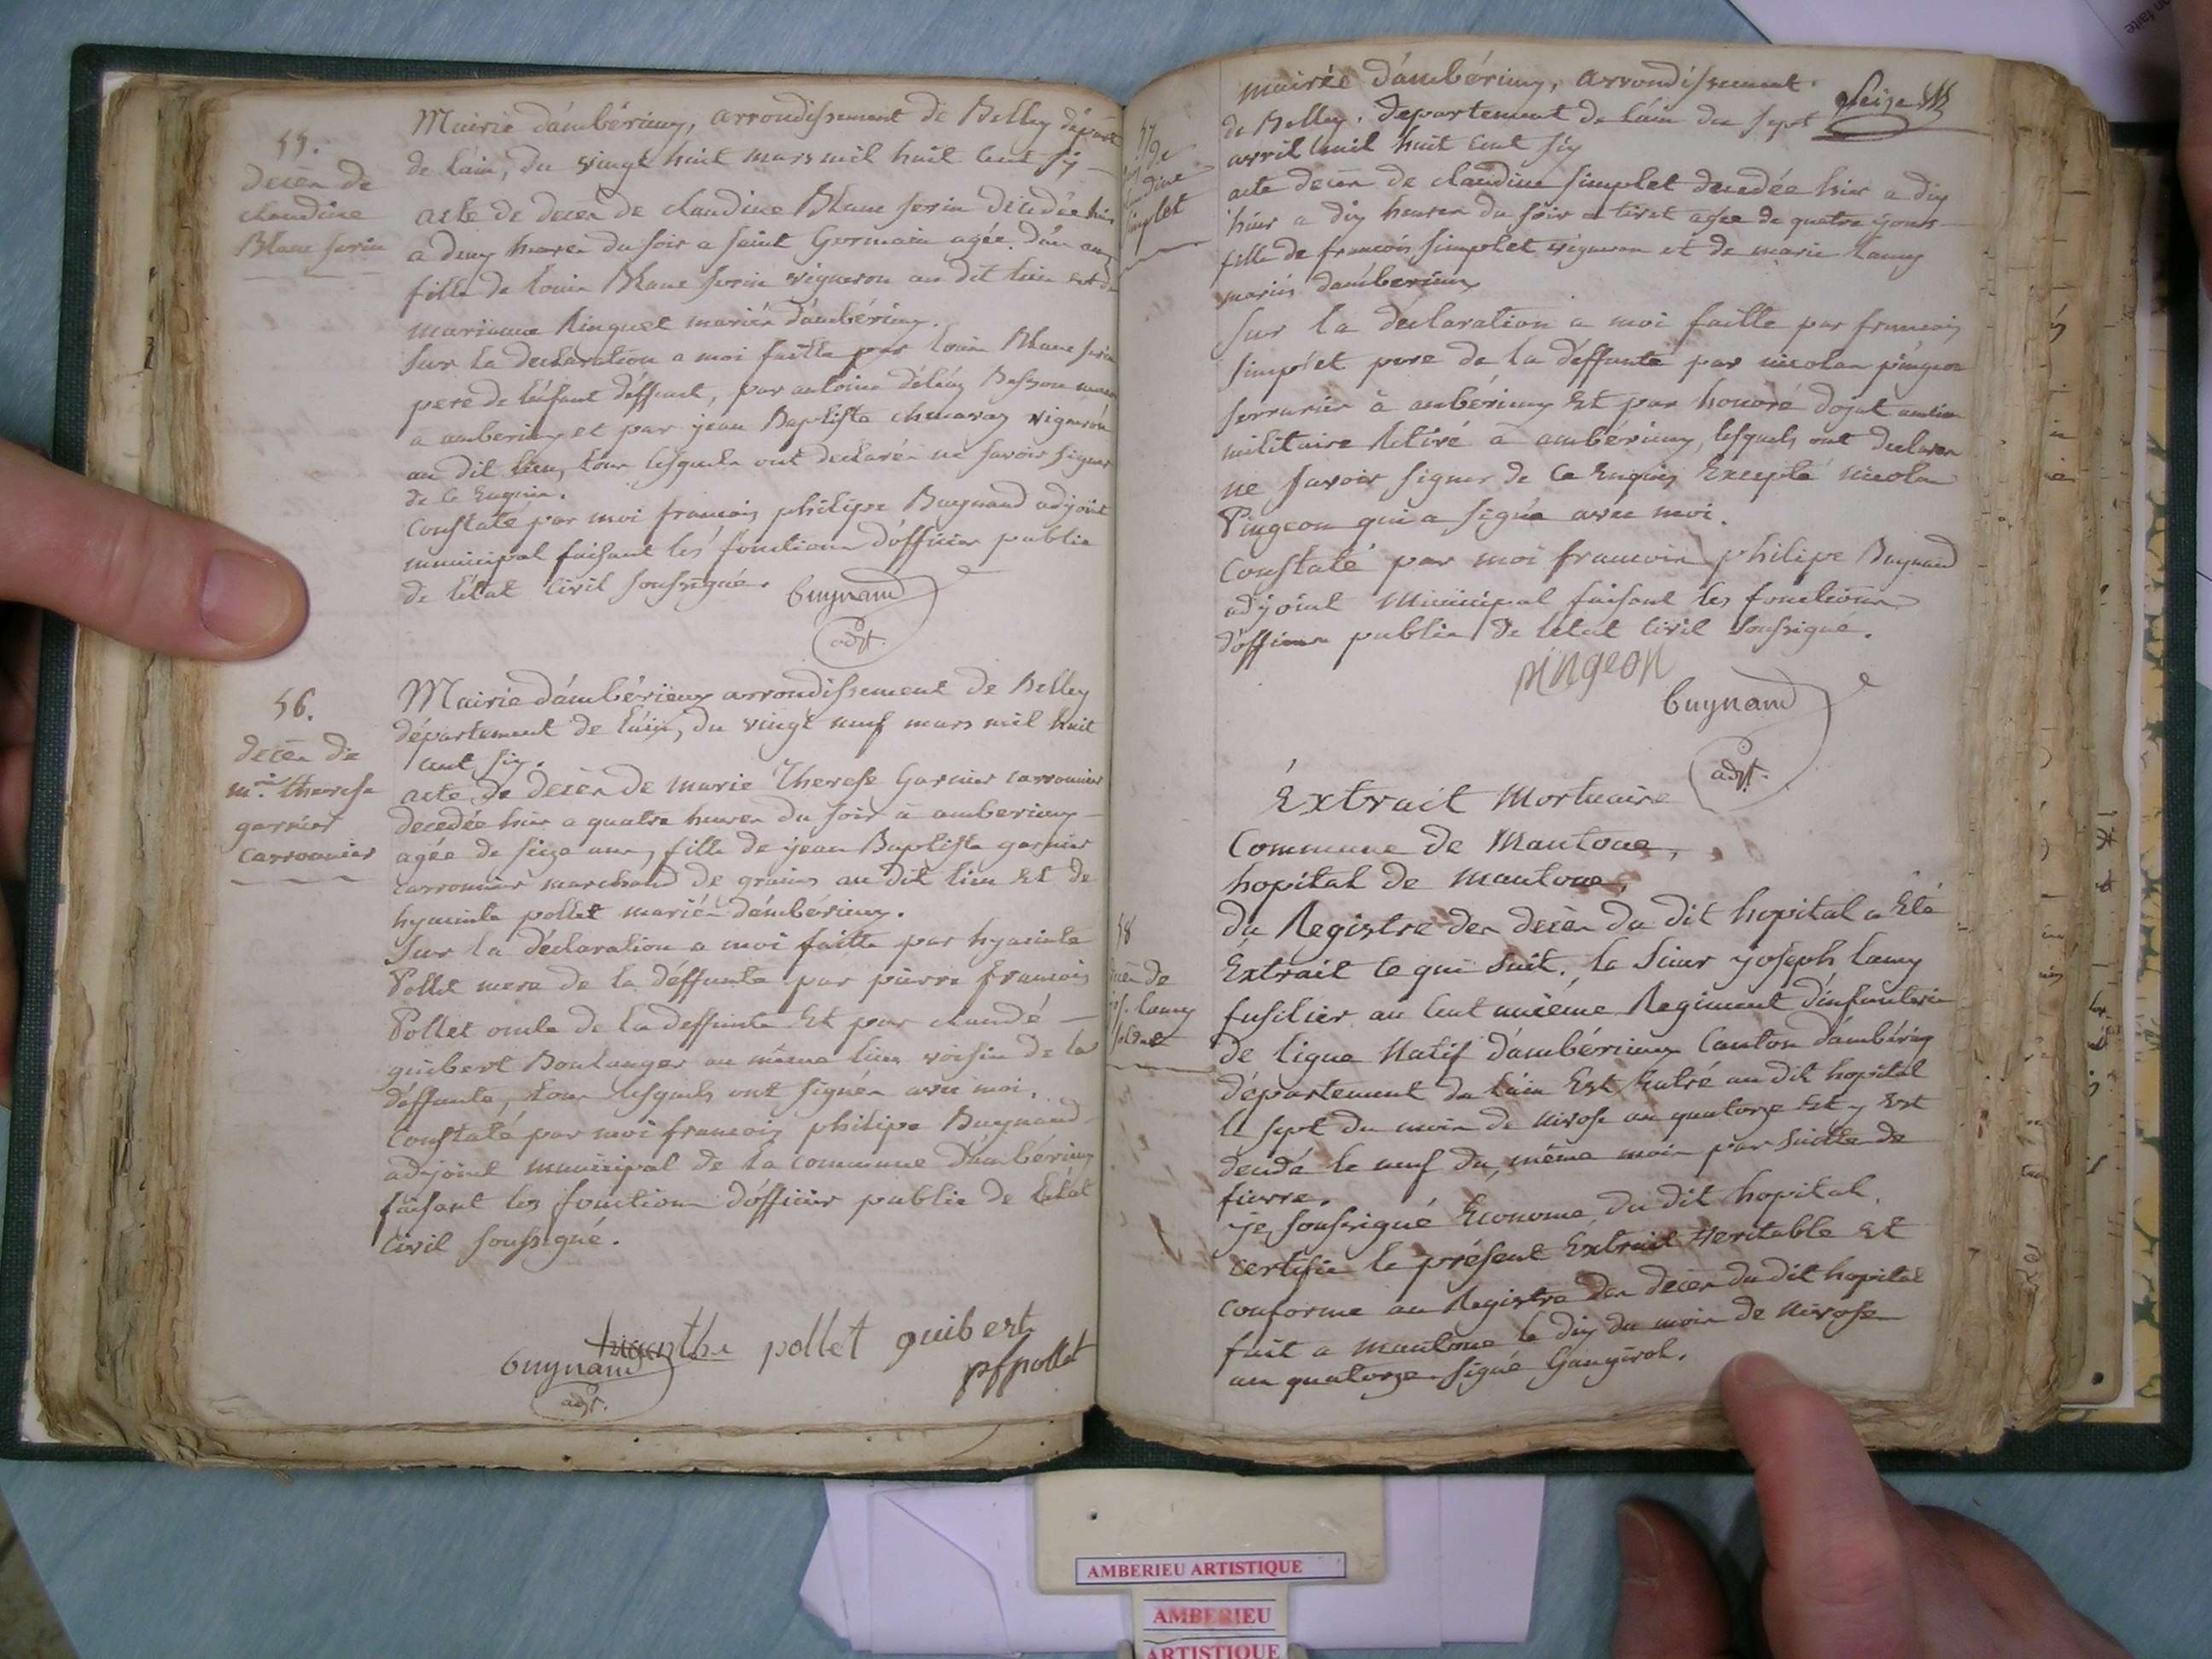 55.
decèn de
claudine
Blanc ferin
Mairie d'ambérieux, arrondissement de Belley départ
de l'ain, du vingt huit mars mil huit cent six
acte de decèn de claudine Blanc ferin décédée hier
a deux heures du soir a saint Germain agée d'un an
fille de louis Blanc ferin vigneron au dit lieu et de
marianne Ringuet mariés d'ambérieux.
sur la declaration a moi faitte par louis Blanc ferin
pere de l'éfant déffunt, par antoine Besson
a amberieux et par jean Baptiste chavaroz vigneron
au dit lieu, tous lesquels ont declarés ne savoir signer
de ce Enquis.
Constaté par moi francois philipe Buynand adjoint
municipal faisant les fonctions d'officier public
de l'état civil soussigné.
buynand
adjt.
56.
decèn de
mie therese
garnier
carronnier
Mairie d'ambérieux arrondissement de Belley
département de l'ain, du vingt neuf mars mil huit
cent six.
acte de decèn de marie Therese Garnier carronnier
decedée hier a quatre heures du soir à amberieux
agée de seize ans, fille de jean Baptiste garnier
carronnier marchand de grains au dit lieu et de
hyacinte pollet mariés d'ambérieux.
Sur la déclaration a moi faitte par hyacinte
Pollet mere de la déffunte par pierre francois
Pollet oncle de la deffunte et par claude
guibert Boulanger au même lieu voisin de la
déffunte, tous lesquels ont signés avec moi.
Constaté par moi francois philipe Buynand
adjoint municipal de la commune d'ambérieux
faisant les fonctions d'officier public de l'état
civil soussigné.
hiacnthe pollet guibert
buynand pfpollet
adjt.
57
de
simplet
mairie d'ambérieux, arrondissement
de Belley, departement de l'ain du sept
seize
avril mil huit cent six
acte decèn de claudine simplet decedée hier a dix
hier a dix heures du soir a tiret agée de quatre jours
fille de francois simplet vigneron et de marie lamy
mariés d'amberieux
Sur la déclaration a moi faitte par francois
simplet pere de la déffunte par nicolas pingeon
serrurier à ambérieux et par honoré dojat ancien
militaire Retiré à ambérieux, lesquels ont declarer
ne savoir signer de ce Enquis Excepté nicolas
Pingeon qui a signé avec moi.
Constaté par moi francois philipe Buynand
adjoint Municipal faisant les fonctions
d'officier public de l'etat civil soussigné.
pingeon
buynand
adjt.
Extrait Mortuaire
Commune de Mantoue,
hopital de mantoue,
58
decèn de
jos. lamy
soldat
du Registre des decèn du dit hopital a Eté
Extrait ce qui suit. le sieur joseph lamy
fusilier au cent unième Regiment d'infanterie
de ligne Natif d'ambérieux Canton d'ambérieux
département de l'ain Est Entré au dit hopital
le sept du mois de nivose an quatorze Et y Est
decedé le neuf du même mois par suitte de
fievre.
je, soussigné Econome du dit hopital.
certifie le présent Extrait veritable et
conforme au Registre des decèn du dit hopital
fait a mantoue le dix du mois de nivose
an quatorze. signé
AMBERIEU ARTISTIQUE
AMBERIEU
ARTISTIQUE